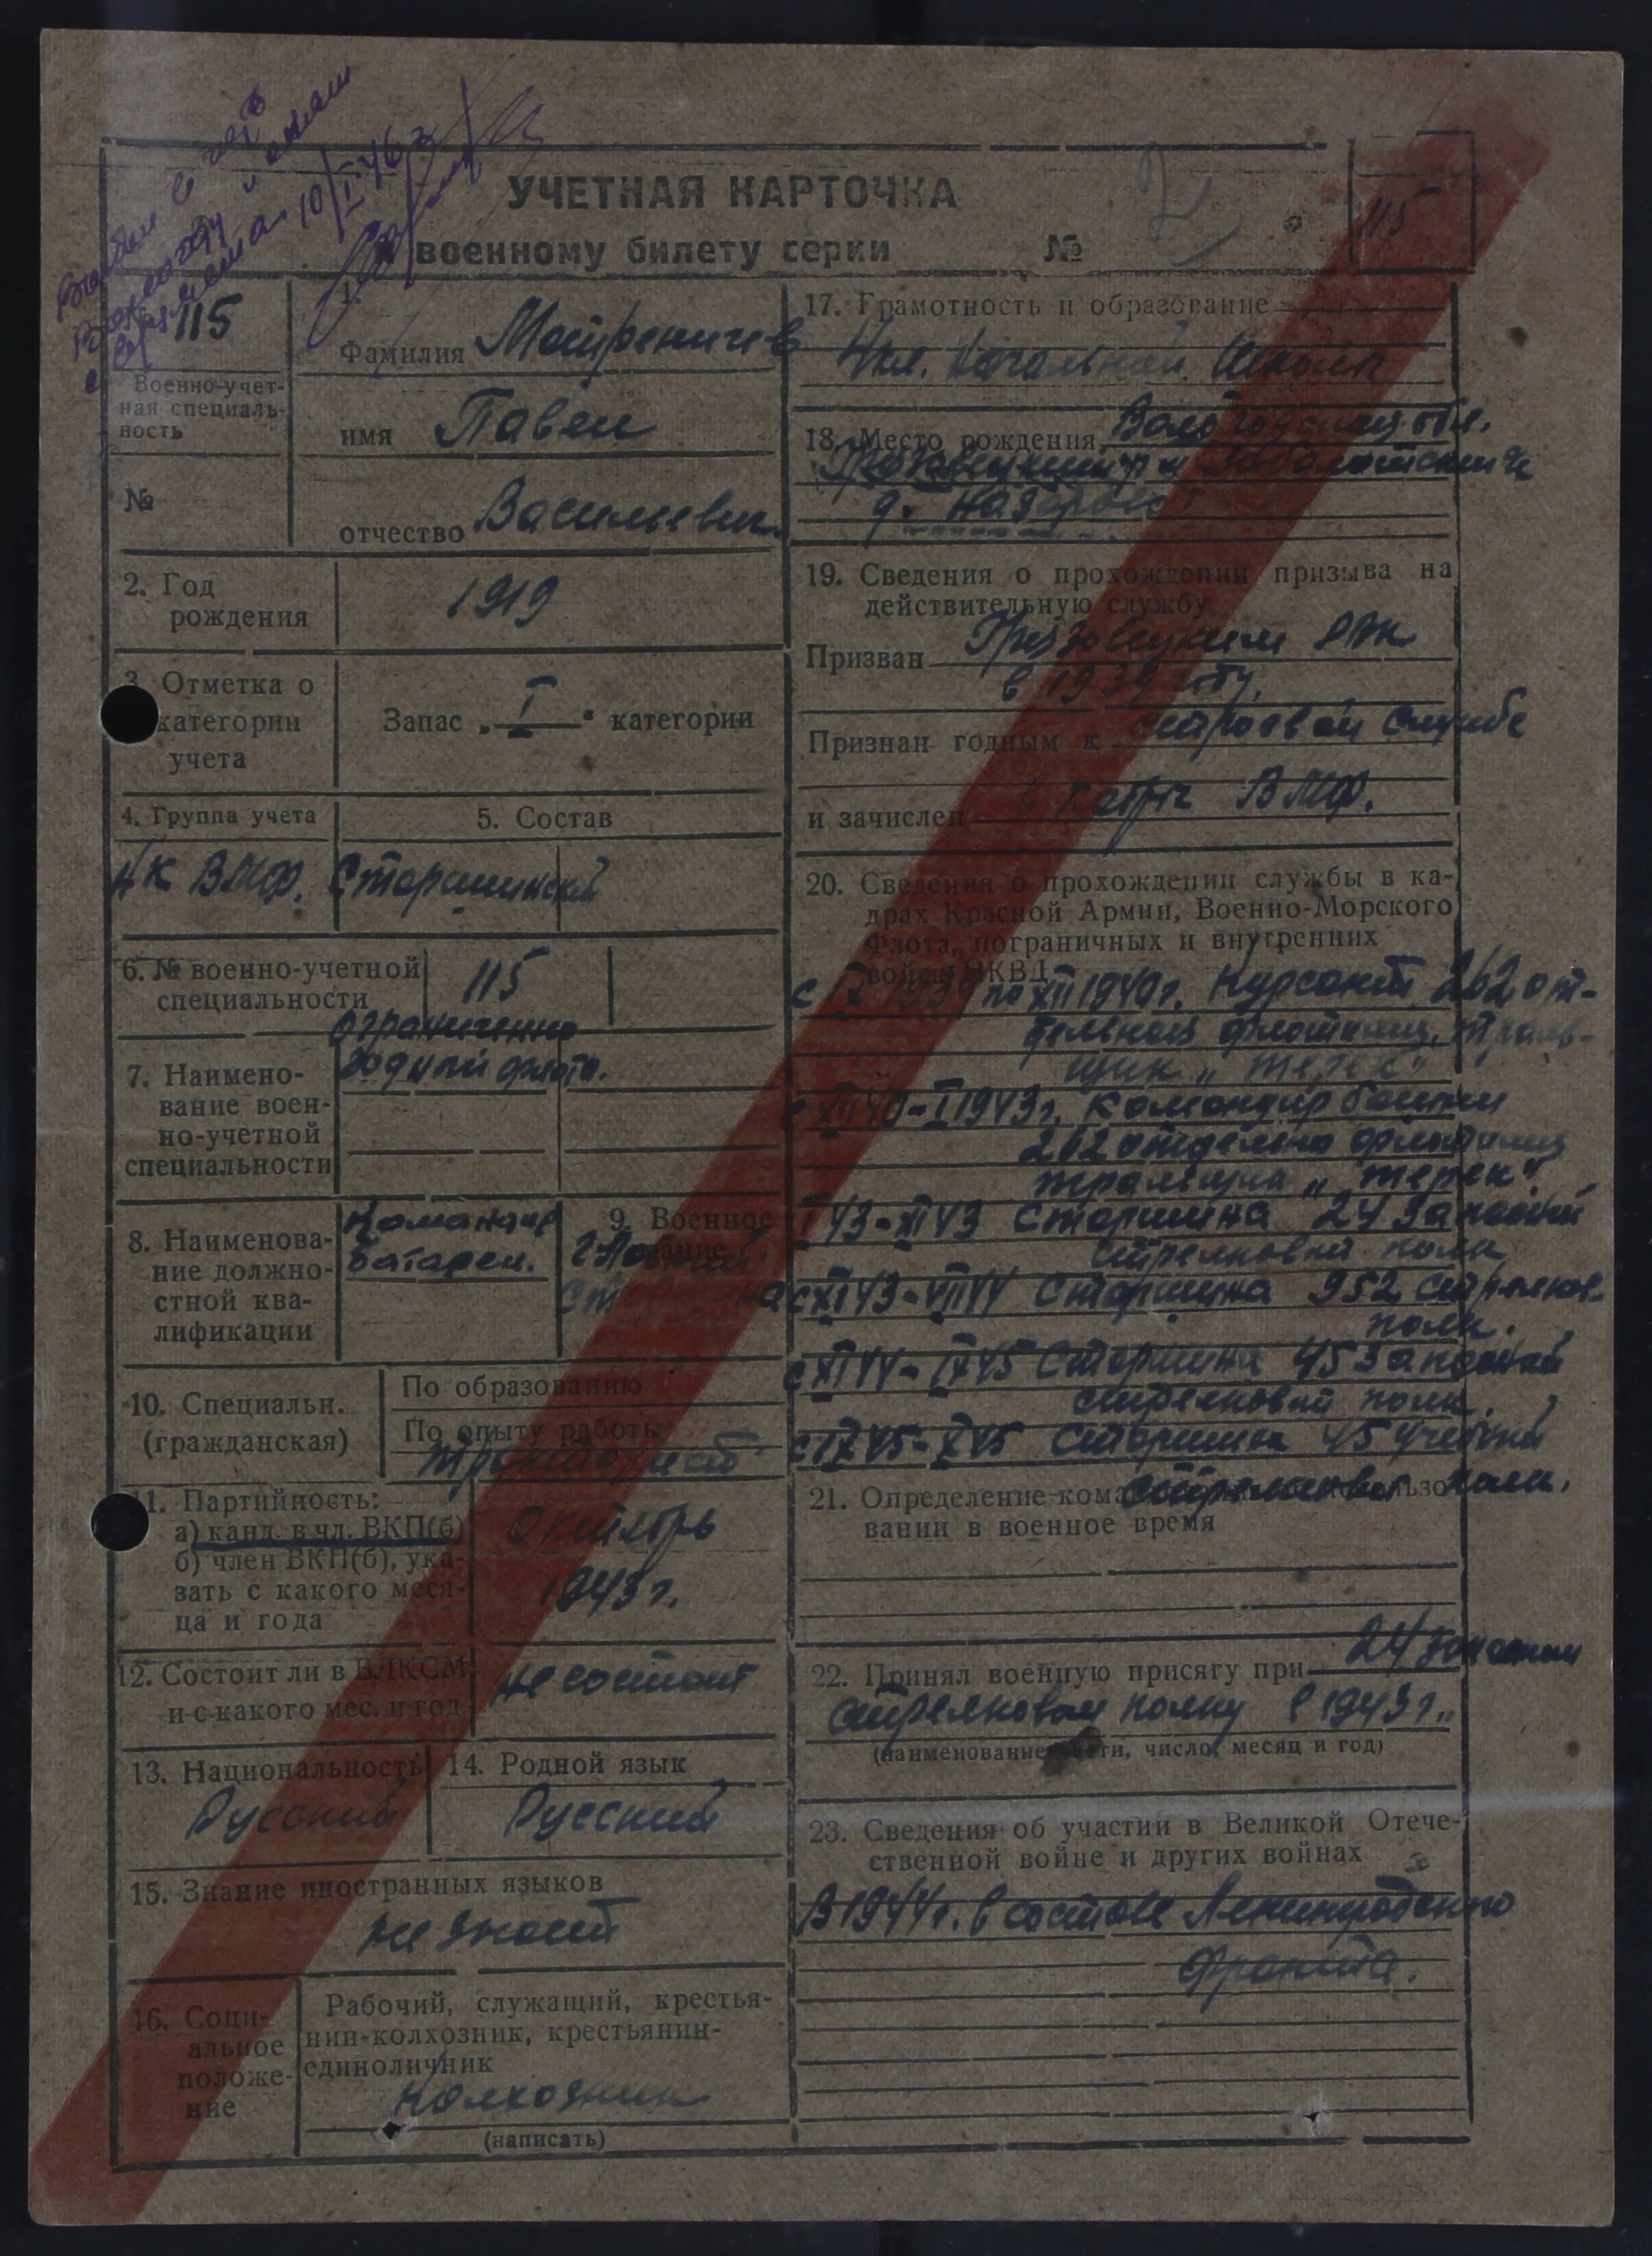 10/I 46 г
УЧЕТНАЯ КАРТОЧКА
к военному билету серии №
115
115
Военно-учет-
ная специаль-
ность
№
1.
Фамилия Матреничев
имя Павел
отчество Васильевич
2. Год
рождения
1919
3. Отметка о
категории
учета
Запас „I“ категории
4. Группа учета
5. Состав
НК ВМФ. Старшинский
6. № военно-учетной
специальности
115
ограниченно
годный флота.
7. Наимено-
вание воен-
но-учетной
специальности
8. Наименова-
ние должно-
стной ква-
лификации
Командир
батареи.
9. Военное
звание
Главный
старшина
10. Специальн.
(гражданская)
По образованию
По опыту работы
тракторист
11. Партийность:
а) канд. в чл. ВКП(б)
б) член ВКП(б), ука-
зать с какого меся-
ца и года
Октябрь
1943 г.
12. Состоит ли в ВЛКСМ
и с какого мес. и год
не состоит
13. Национальность
Русский
14. Родной язык
Русский
15. Знание иностранных языков
не знает
16. Соци-
альное
положе-
ние
Рабочий, служащий, крестья-
нин-колхозник, крестьянин-
единоличник
Колхозник
(написать)
17. Грамотность и образование
4 кл. начальной школы
18. Место рождения Вологодская обл.
Грязовецкий р-н
д.
19. Сведения о прохождении призыва на
действительную службу
Призван Грязовецким РВК
в 1939 году.
Признан годным к строевой службе
и зачислен в кадры ВМФ.
20. Сведения о прохождении службы в ка-
драх Красной Армии, Военно-Морского
Флота, пограничных и внутренних
войск НКВД
с 1939 по XII 1940 г. Курсант 262 от-
дельной флотилии, траль-
щик „Терек“
с XII 40 - I 1943 г. Командир башни
262 отдельно флотилии
тральщика „Терек“.
I 43 - XI 43 Старшина 24 запасной
стрелковый полк
с XI 43 - VIII 44 Старшина 952 стрелков.
полк.
с XI 44 - IX 45 Старшина 45 запасной
стрелковый полк.
с IX 45 - X 45 Старшина 45 учебный
стрелковый полк.
21. Определение команд об использо-
вании в военное время
22. Принял военную присягу при 24 запасном
стрелковом полку в 1943 г.
(наименование части, число, месяц и год)
23. Сведения об участии в Великой Отече-
ственной войне и других войнах
В 1944 г. в составе Ленинградского
фронта.